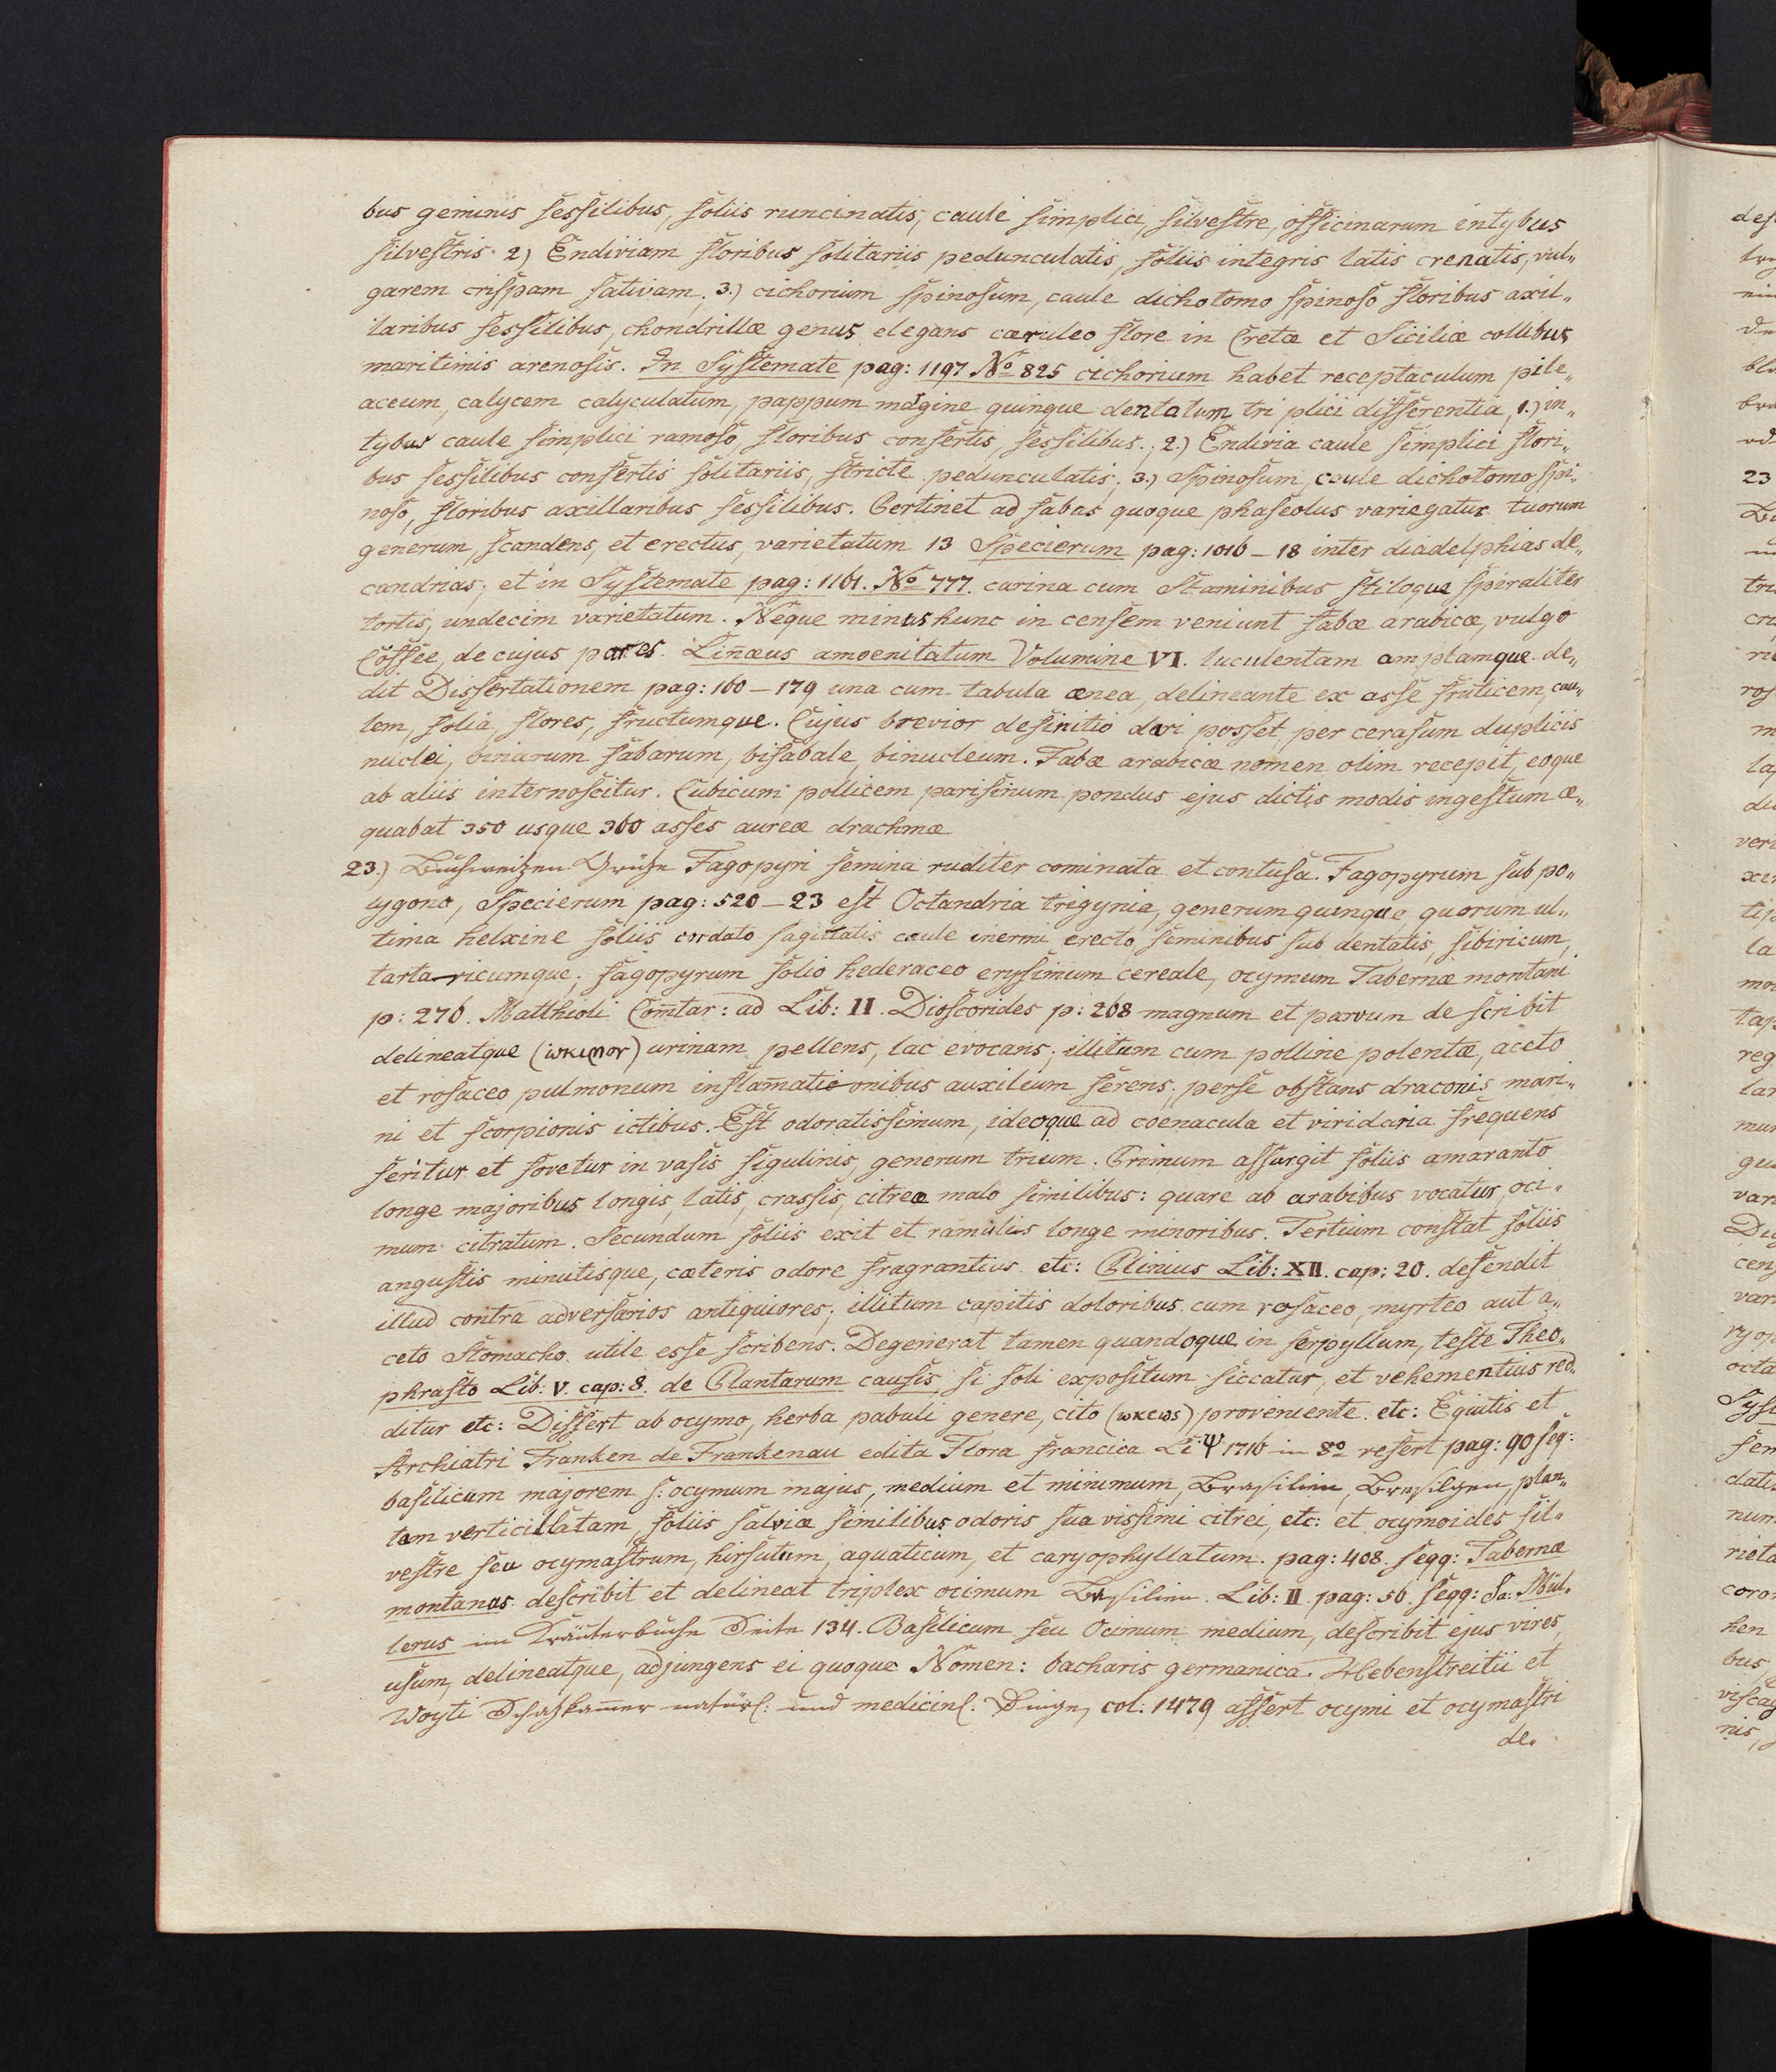 bus geminis sessilibus, foliis runcinatis, caule simplici, silvestre, officinarum intybus
silvestris. 2) Endiviam floribus solitariis pedunculatis, foliis integris latis crenatis, vul„
garem crispam sativam. 3.) cichorium spinosum, caule dichotomo spinoso floribus axil„
laribus sessilibus, chondrillæ genus elegans cæruleo flore in Cretæ et Siciliæ collibus
maritimis arenosis. In Systemate pag: 1197 No 825 cichorium habet receptaculum pile„
aceum, calycem calyculatum, pappum margine quinque dentatum tri plici differentia, 1.) in„
tybus caule simplici ramoso, floribus confertis, sessilibus., 2.) Endivia caule simplici flori„
bus sessilibus confertis solitariis, stricte pedunculatis, 3.) Spinosum, caule dichotomo spi„
noso, floribus axillaribus sessilibus. Pertinet ad fabas quoque phaseolus variegatus tuorum
generum, scandens, et erectus, varietatum 13 Specierum pag: 1016 – 18 inter diadelphias de„
candrias; et in Systemate pag: 1161. No 777. carina cum Staminibus stiloque spiraliter
tortis, undecim varietatum. Neque minus hunc in censem veniunt fabæ arabicæ, vulgo
Coffee, de cujus partes. Lin̄æus amoenitatum Volumine VI. luculentam amplamque de„
dit Dissertationem pag: 160 – 179 una cum tabula ænea, delineante ex asse fruticem, cau„
lem, folia, flores, fructumque. Cujus brevior definitio dari posset, per cerasum duplicis
nuclei, binarum fabarum, bifabale, binucleum. Fabæ arabicæ nomen olim recepit, eoque
ab aliis internoscitur. Cubicum pollicem parisinum pondus ejus dictis modis ingestum æ„
quabat 350 usque 360 asses aureæ drachmæ
23.) Buchweitzen Grütze Fagopyri semina ruditer cominata et contusa. Fagopyrum sub po„
lygono, Specierum pag: 520 – 23 est Octandria trigynia, generum quinque quorum ul„
tima helxine foliis cordato sagittatis caule inermi erecto seminibus sub dentatis, sibiricum,
tartaricumque; fagopyrum folio hederaceo erysimum cereale, ocymum Tabernæ montani
p: 276. Matthioli Com̄tar: ad Lib: II. Dioscorides p: 268 magnum et parvum de scribit
delineatque (ὠκιμον) urinam pellens, lac evocans; illitum cum polline polentæ, aceto
et rosaceo pulmonum inflam̄ationibus auxilium ferens; perse obstans draconis mari„
ni et scorpionis ictibus. Est odoratissimum, ideoque ad coenacula et viridaria frequens
seritur et fovetur in vasis figulinis, generum trium. Primum assurgit foliis amaranto
longe majoribus longis, latis, crassis, citreæ malo similibus: quare ab arabibus vocatur oci„
mum citratum. Secundum foliis exit et ramulis longe minoribus. Tertium constat foliis
angustis minutisque, cæteris odore fragrantius etc: Plinius Lib: XII. cap: 20. defendit
illud contra adversarios antiquiores; illitum capitis doloribus cum rosaceo, myrteo aut a„
ceto Stomacho utile esse scribens. Degenerat tamen quandoque in serpyllum, teste Theo„
phrasto Lib: V. cap: 8. de Plantarum causis, si soli expositum siccatur, et vehementius red„
ditur etc: Differt ab ocymo, herba pabuli genere, cito (ωκεως) proveniente etc: Equitis et
Archiatri Franken de Frankenau edita Flora francica Li Ψ 1716 in 8o refert pag: 90 seq:
basilicum majorem s: ocymum majus, medium et minimum, Brasilien, Brasilgen, plan„
tam verticillatam, foliis salviæ similibus odoris sua vissimi citrei, etc: et ocymoides sil„
vestre seu ocymastrum, hirsutum, aquaticum, et caryophyllatum. pag: 408. seqq: Tabernæ
montanas describit et delineat triplex ocimum Basilien. Lib: II. pag: 56. seqq: Ja: Mül„
lerus im Kräuterbuche Seite 134. Basilicum seu Ocimum medium, describit ejus vires,
usum, delineatque, adjungens ei quoque Nomen: bacharis germanica. Hebenstreitii et
Woyti Schatzkam̄er natürl: und medicinl: Dinge, col: 1479 affert ocymi et ocymastri
de„